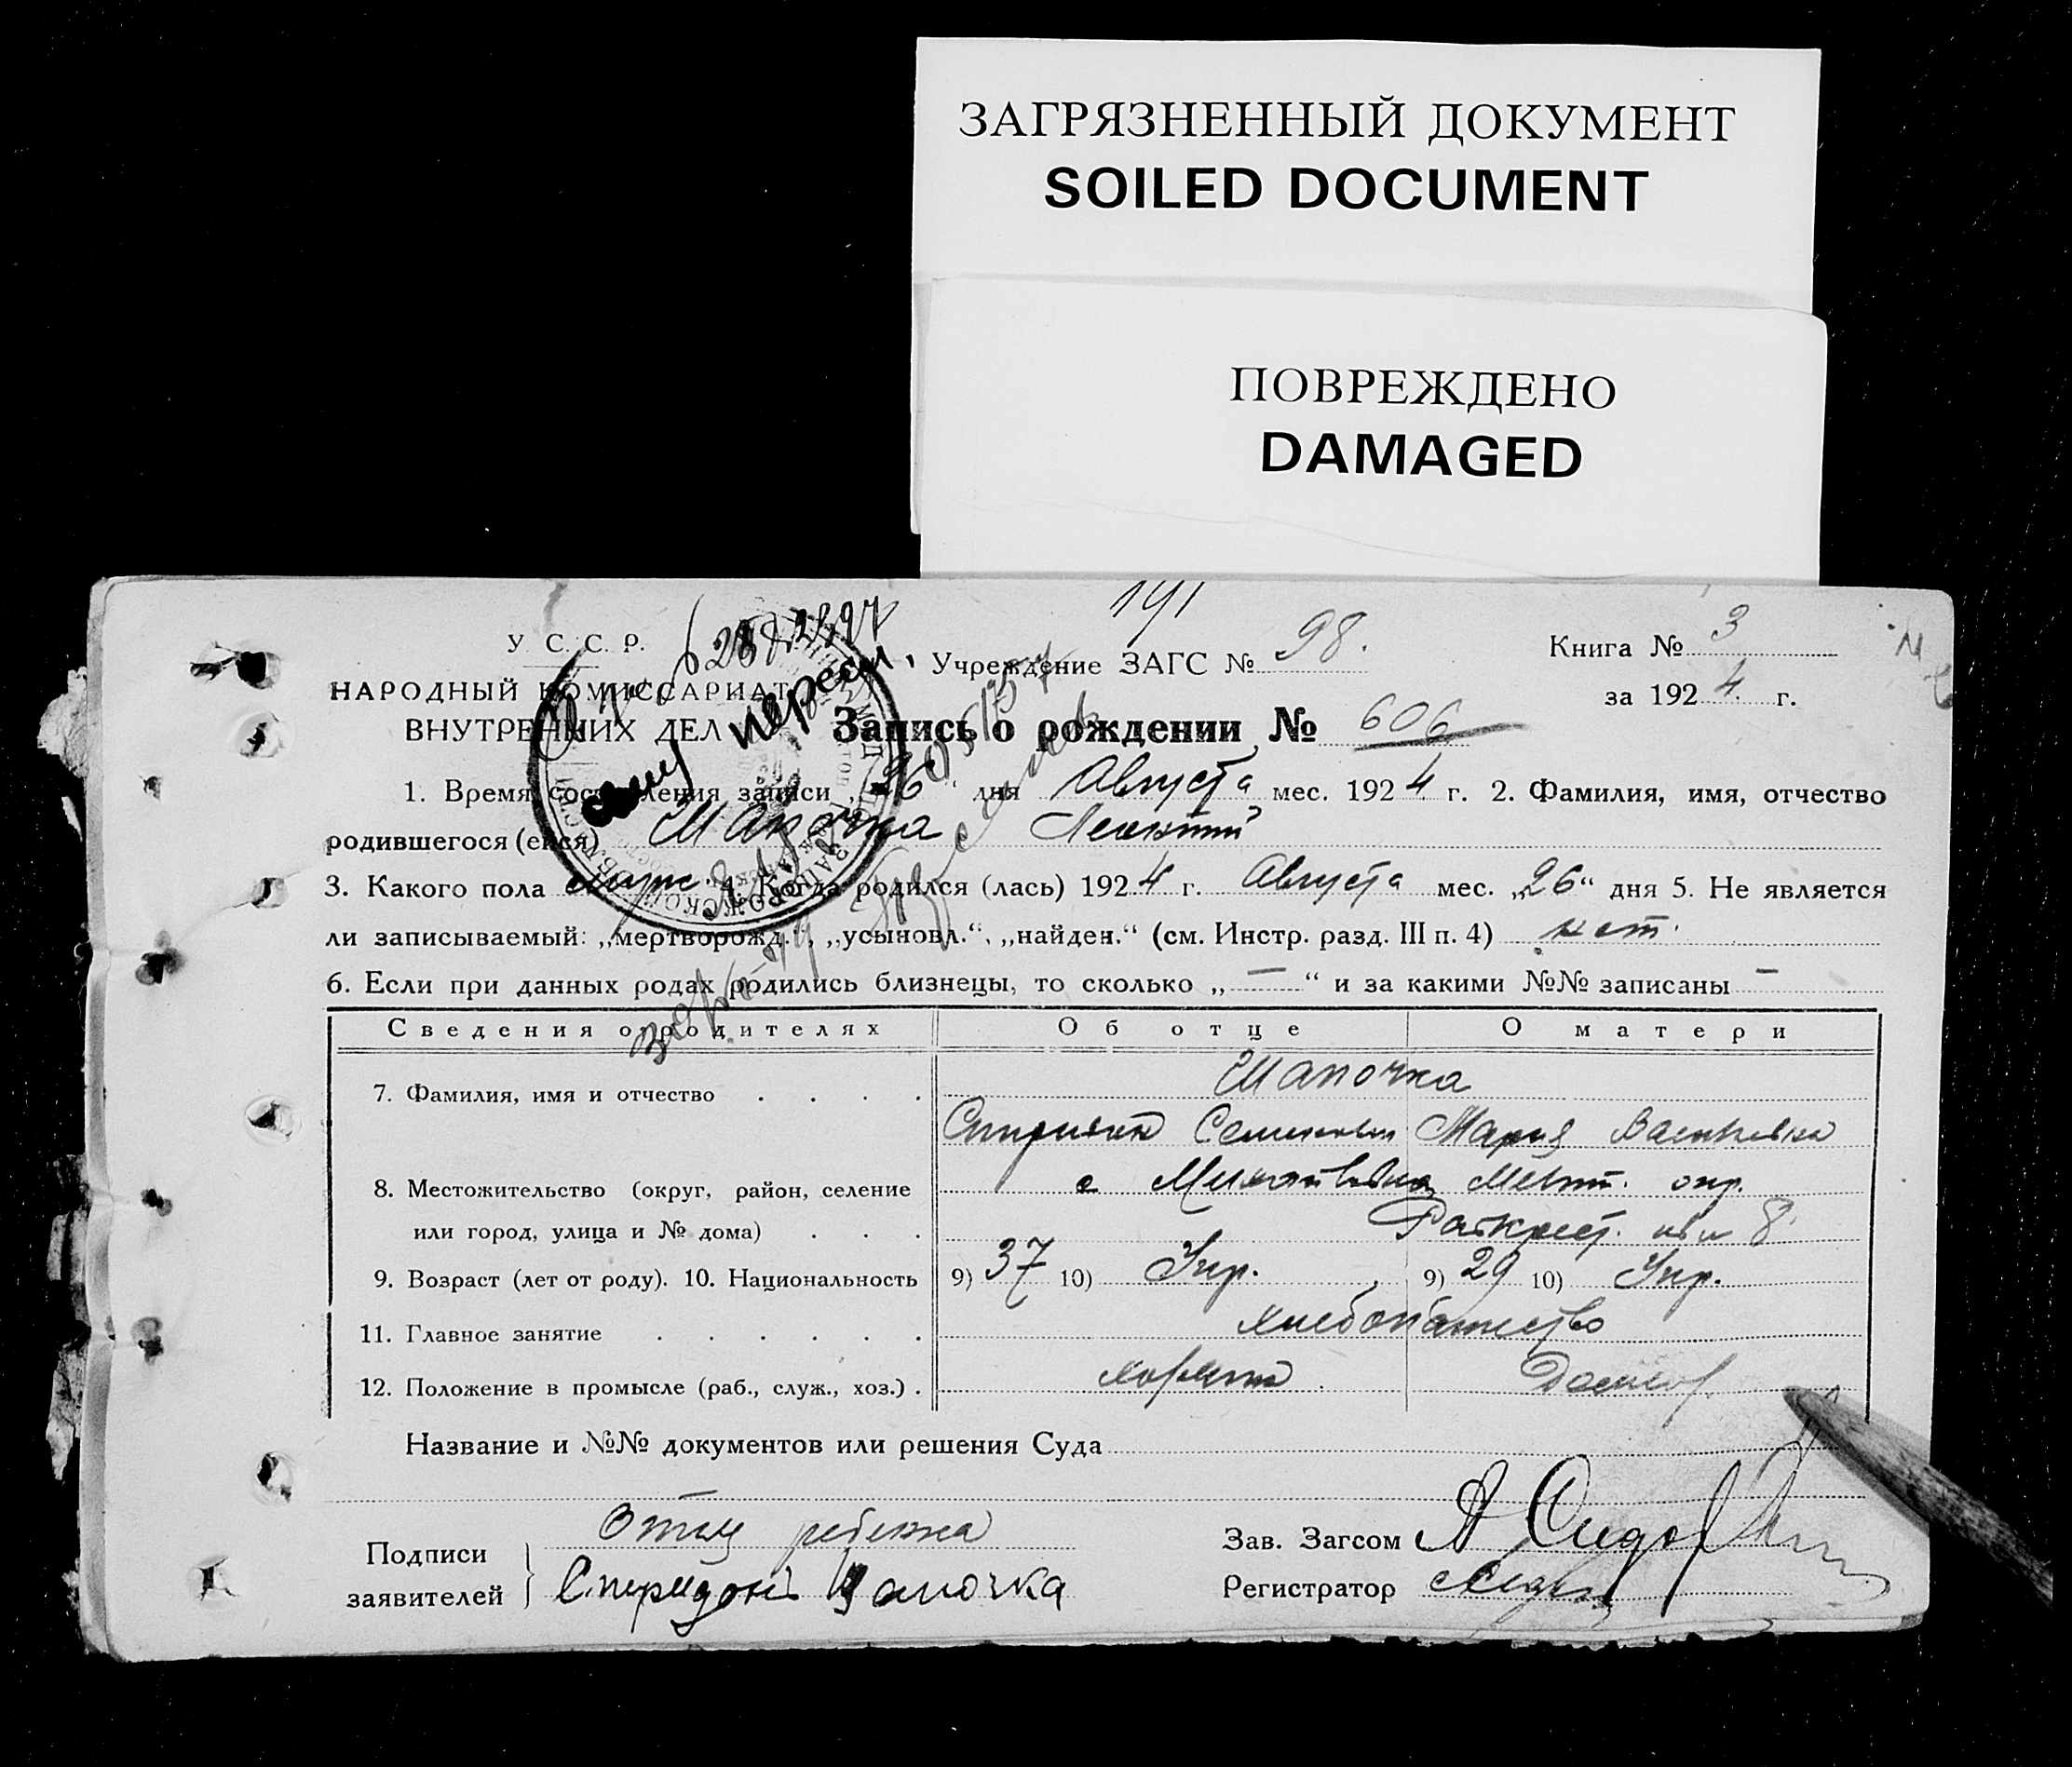 ЗАГРЯЗНЕННЫЙ ДОКУМЕНТ
SOILED DOCUMENT
ПОВРЕЖДЕНО
DAMAGED
191
У. С. С. Р.
НАРОДНЫЙ КОМИССАРИАТ
ВНУТРЕННИХ ДЕЛ
Учреждение ЗАГС № 98.
Книга № 3
за 1924 г.
Запись о рождении № 606
1. Время составления записи „26“ дня Августа мес. 1924 г. 2. Фамилия, имя, отчество
родившегося (ейся) Шапочка Леонтий
3. Какого пола муж. 4. Когда родился (лась) 1924 г. Августа мес. „26“ дня 5. Не является
ли записываемый: „мертворожд.“, „усыновл.“, „найден.“ (см. Инстр. разд. III п. 4) нет.
6. Если при данных родах родились близнецы, то сколько „—“ и за какими №№ записаны —
Сведения о родителях Об отце О матери
7. Фамилия, имя и отчество Шапочка
Спиридон Семенович Мария Васильевна
8. Местожительство (округ, район, селение с Мелит. окр.
или город, улица и № дома) 8
9. Возраст (лет от роду). 10. Национальность 9) 37 10) Укр. 9) 29 10) Укр.
11. Главное занятие хлебопашество
12. Положение в промысле (раб., служ., хоз.)
Название и №№ документов или решения Суда
Подписи заявителей Отец ребенка
Спиридонъ Шапочка
Зав. Загсом А
Регистратор